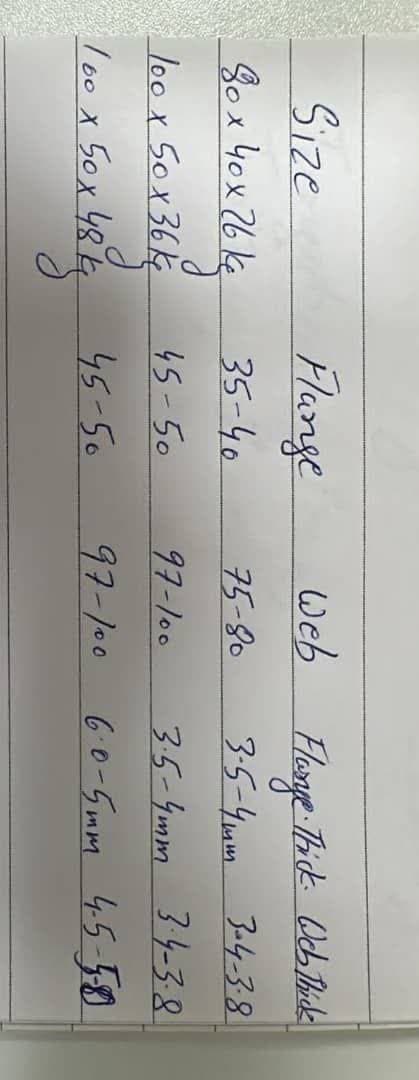 Size Flange Web Flange Thick. Web Thick
80 x 40 x 26 kg 35-40 75-80 3.5-4mm 3.4-3.8
100 x 50 x 36 kg 45-50 97-100 3.5-4mm 3.4-3.8
100 x 50 x 48 kg 45-50 97-100 6.0-5mm 4.5-5.8